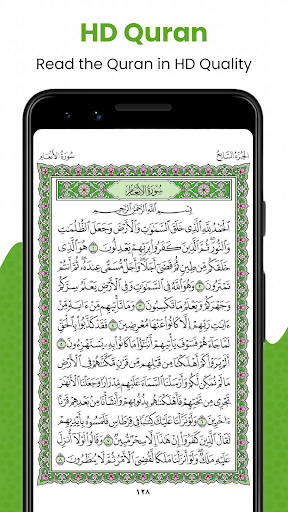 HD Quran
Read the Quran in HD Quality
الجُزْءُ السَّابِعُ
سُورَةُ الأَنْعَامِ
سُورَةُ الأَنْعَامِ
بِسْمِ ٱللَّهِ ٱلرَّحْمَٰنِ ٱلرَّحِيمِ
ٱلْحَمْدُ لِلَّهِ ٱلَّذِى خَلَقَ ٱلسَّمَٰوَٰتِ وَٱلْأَرْضَ وَجَعَلَ ٱلظُّلُمَٰتِ
وَٱلنُّورَ ثُمَّ ٱلَّذِينَ كَفَرُوا۟ بِرَبِّهِمْ يَعْدِلُونَ ١ هُوَ ٱلَّذِى
خَلَقَكُم مِّن طِينٍ ثُمَّ قَضَىٰٓ أَجَلًا وَأَجَلٌ مُّسَمًّى عِندَهُۥ ثُمَّ أَنتُمْ
تَمْتَرُونَ ٢ وَهُوَ ٱللَّهُ فِى ٱلسَّمَٰوَٰتِ وَفِى ٱلْأَرْضِ يَعْلَمُ سِرَّكُمْ
وَجَهْرَكُمْ وَيَعْلَمُ مَا تَكْسِبُونَ ٣ وَمَا تَأْتِيهِم مِّنْ ءَايَةٍ
مِّنْ ءَايَٰتِ رَبِّهِمْ إِلَّا كَانُوا۟ عَنْهَا مُعْرِضِينَ ٤ فَقَدْ كَذَّبُوا۟ بِٱلْحَقِّ
لَمَّا جَآءَهُمْ فَسَوْفَ يَأْتِيهِمْ أَنۢبَٰٓؤُا۟ مَا كَانُوا۟ بِهِۦ يَسْتَهْزِءُونَ ٥
أَلَمْ يَرَوْا۟ كَمْ أَهْلَكْنَا مِن قَبْلِهِم مِّن قَرْنٍ مَّكَّنَّٰهُمْ فِى ٱلْأَرْضِ
مَا لَمْ نُمَكِّن لَّكُمْ وَأَرْسَلْنَا ٱلسَّمَآءَ عَلَيْهِم مِّدْرَارًا وَجَعَلْنَا ٱلْأَنْهَٰرَ
تَجْرِى مِن تَحْتِهِمْ فَأَهْلَكْنَٰهُم بِذُنُوبِهِمْ وَأَنشَأْنَا مِنۢ بَعْدِهِمْ قَرْنًا
ءَاخَرِينَ ٦ وَلَوْ نَزَّلْنَا عَلَيْكَ كِتَٰبًا فِى قِرْطَاسٍ فَلَمَسُوهُ بِأَيْدِيهِمْ
لَقَالَ ٱلَّذِينَ كَفَرُوٓا۟ إِنْ هَٰذَآ إِلَّا سِحْرٌ مُّبِينٌ ٧ وَقَالُوا۟ لَوْلَآ أُنزِلَ
عَلَيْهِ مَلَكٌ وَلَوْ أَنزَلْنَا مَلَكًا لَّقُضِىَ ٱلْأَمْرُ ثُمَّ لَا يُنظَرُونَ ٨
١٢٨